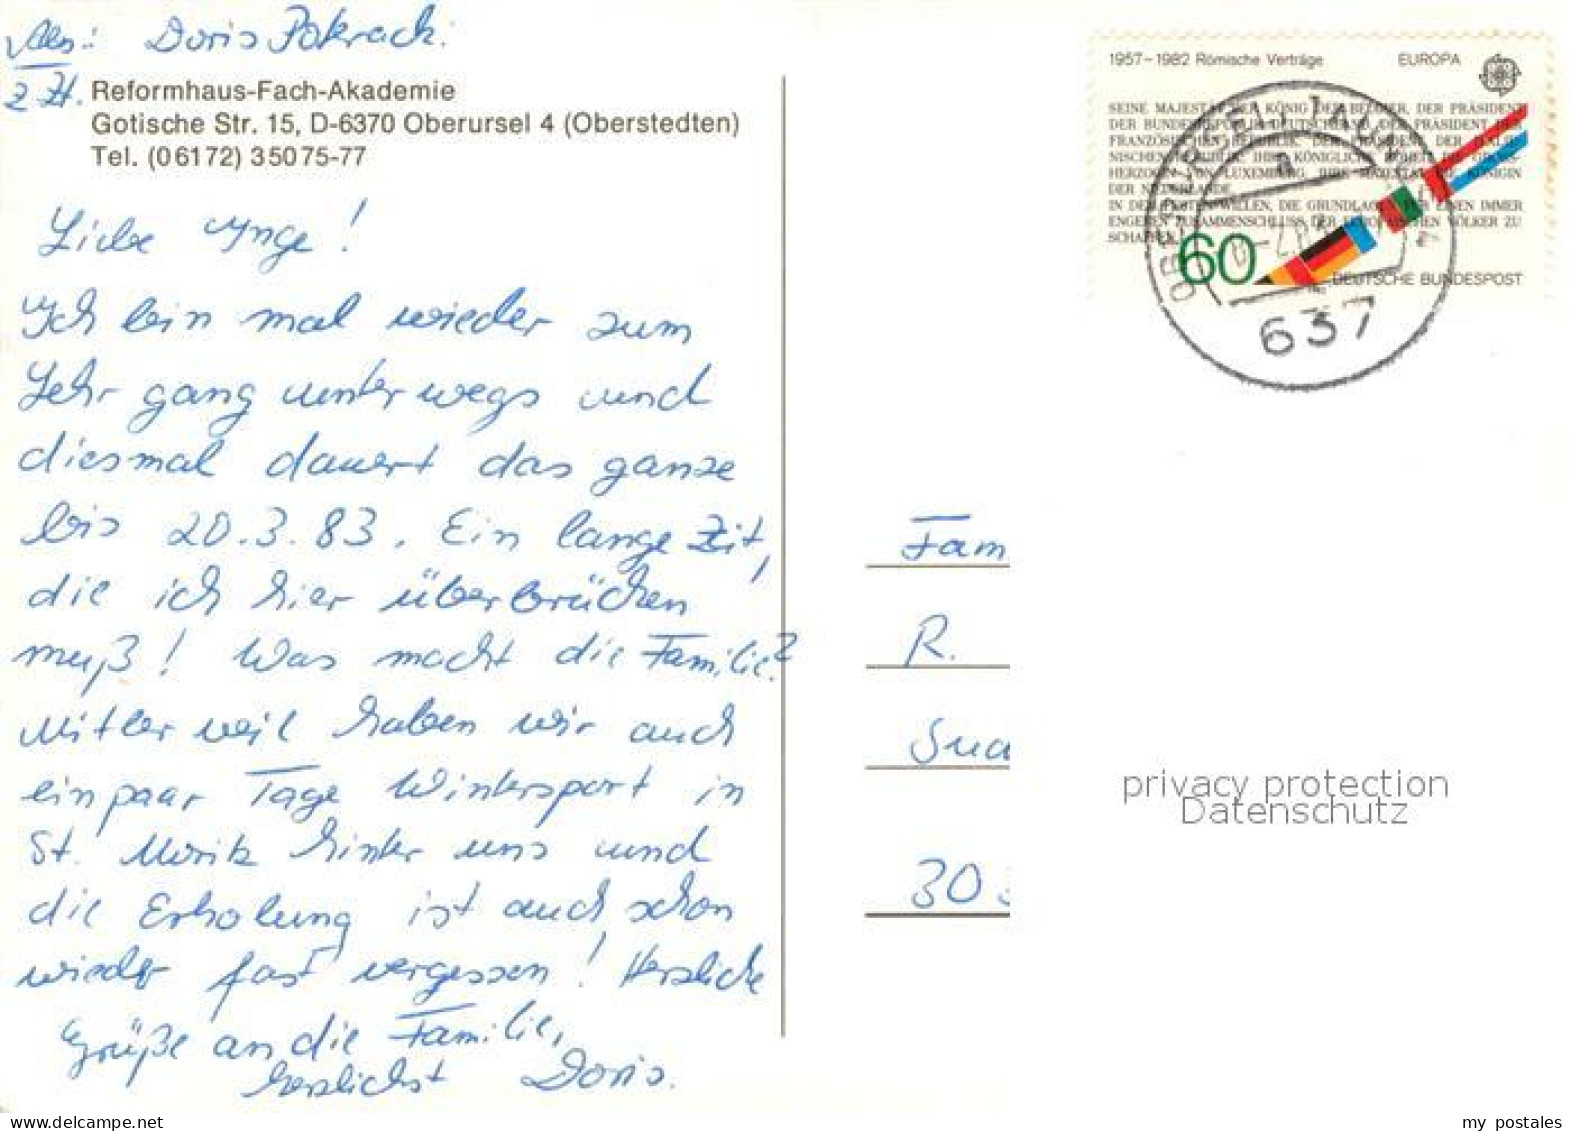 Abs.: Doris Pokrack.
z. Zt. Reformhaus-Fach-Akademie
Gotische Str. 15, D-6370 Oberursel 4 (Oberstedten)
Tel. (06172) 35075-77
Liebe Inge!
Ich bin mal wieder zum
Lehrgang unterwegs und
diesmal dauert das ganze
bis 20.3.83. Ein lange Zeit,
die ich hier überbrücken
muß! Was macht die Familie?
Mitlerweil haben wir auch
ein paar Tage Wintersport in
St. Moritz hinter uns und
die Erholung ist auch schon
wieder fast vergessen! Herzliche
Grüße an die Familie,
herzlichst Doris.
1957-1982 Römische Verträge EUROPA
SEINE MAJESTÄT DER KÖNIG DER BELGIER, DER PRÄSIDENT
DER BUNDESREPUBLIK DEUTSCHLAND, DER PRÄSIDENT DER
FRANZÖSISCHEN REPUBLIK, DER PRÄSIDENT DER ITALIE-
NISCHEN REPUBLIK, IHRE KÖNIGLICHE HOHEIT DIE GROSS-
HERZOGIN VON LUXEMBURG, IHRE MAJESTÄT DIE KÖNIGIN
DER NIEDERLANDE
IN DEM FESTEN WILLEN, DIE GRUNDLAGEN FÜR EINEN IMMER
ENGEREN ZUSAMMENSCHLUSS DER EUROPÄISCHEN VÖLKER ZU
SCHAFFEN
60
DEUTSCHE BUNDESPOST
637
Fam
R.
30
privacy protection
Datenschutz
my postales